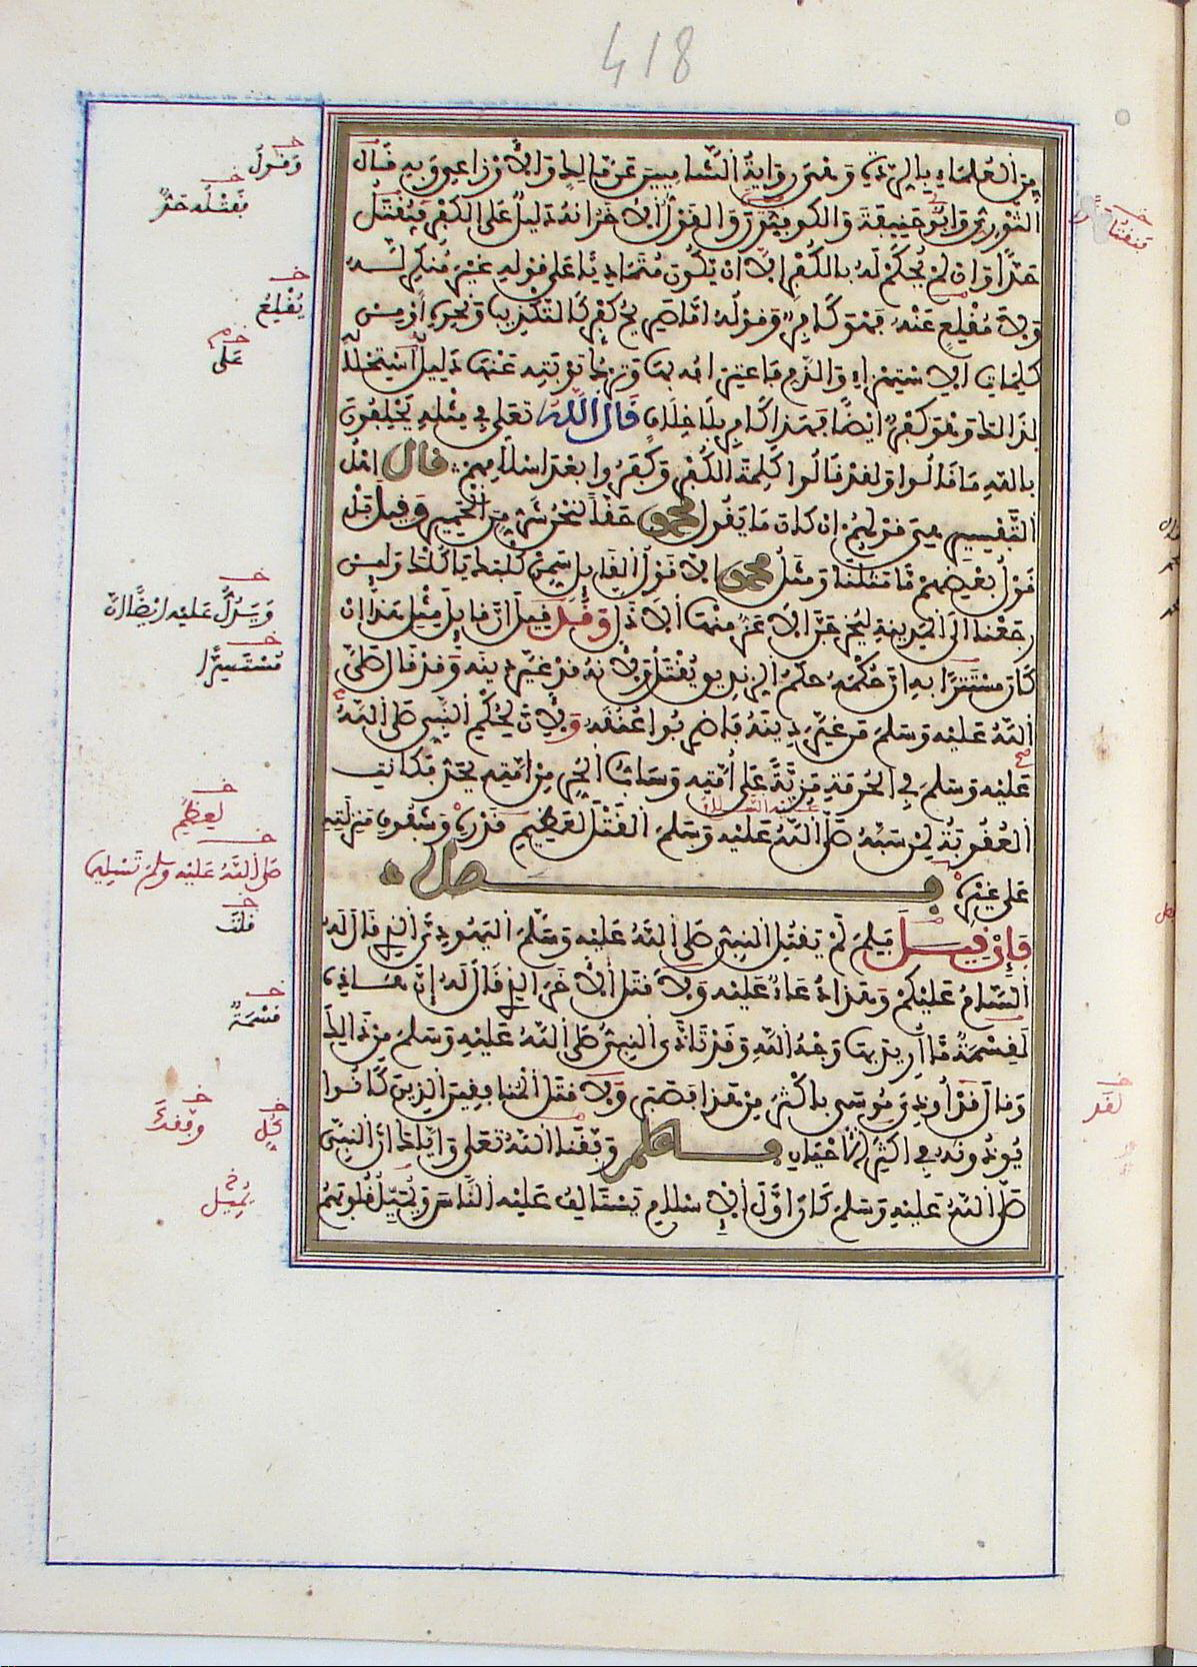 418
من العلماء بالردة وهى رواية الشاميين عن مالك والأوزاعى وبه قال
الثورى وابو حنيفة والكوفيون والقول الاخر انه دليل على الكفر فيقتل
حدا وان لم يحكم له بالكفر إلا ان يكون متماديا على قوله غير منكر له
ولا مقلع عنه فهو كافر وقوله اما صريح كفر كالتكذيب ونحوه أو من
كلمات الاستهزاء والذم فاعترافه بها وترك توبته عنها دليل استحلاله
لذالك وهو كفر ايضا فهذا كافر بلا خلاف قال الله تعلى في مثله يحلفون
بالله ما قالوا ولقد قالوا كلمة الكفر وكفروا بعد اسلامهم قال اهل
التفسير هى قولهم ان كان ما يقول محمد حقا لنحن شر من الحمير وقيل بل
قول بعضهم ما مثلنا ومثل محمد الا قول القائل سمن كلبك ياكلك ولئن
رجعنا الى المدينة ليخرجن الاعز منها الاذل وقد قيل ان قايل مثل هذا ان
كان مستترا به ان حكمه حكم الزنديق يقتل ولانه قد غير دينه وقد قال صلى
الله عليه وسلم من غير دينه فاضربوا عنقه ولأن لحكم النبي صلى الله
عليه وسلم في الحرمة مزية على أمته وساب الحر من امته يحد فكانت
العقوبة لمن سبه صلى الله عليه وسلم القتل لعظيم قدره وشفوف منزلته
على غيره فصل
فإن قيل فلم لم يقتل النبي صلى الله عليه وسلم اليهودى الذي قال له
السام عليكم وهذا دعاء عليه ولا قتل الاخر الذي قال له إن هذه
لقسمة ما أريد بها وجه الله وقد تأذى النبي صلى الله عليه وسلم من ذالك
وقال قد أوذى موسى باكثر من هذا فصبر ولا قتل المنافقين الذين كانوا
يوذونه في اكثر الاحيان فاعلم وفقنا الله تعلى واياك ان النبي
صلى الله عليه وسلم كان أول الاسلام يستالف عليه الناس ويميل قلوبهم
وقول
فقتله حد
يقلع
على
ويدل عليه ايضا ان
مستسرا
لعظيم
صلى الله عليه وسلم تسليما
قلت
قسمة
وفقك
كل
يميل
فيقتل
لقد